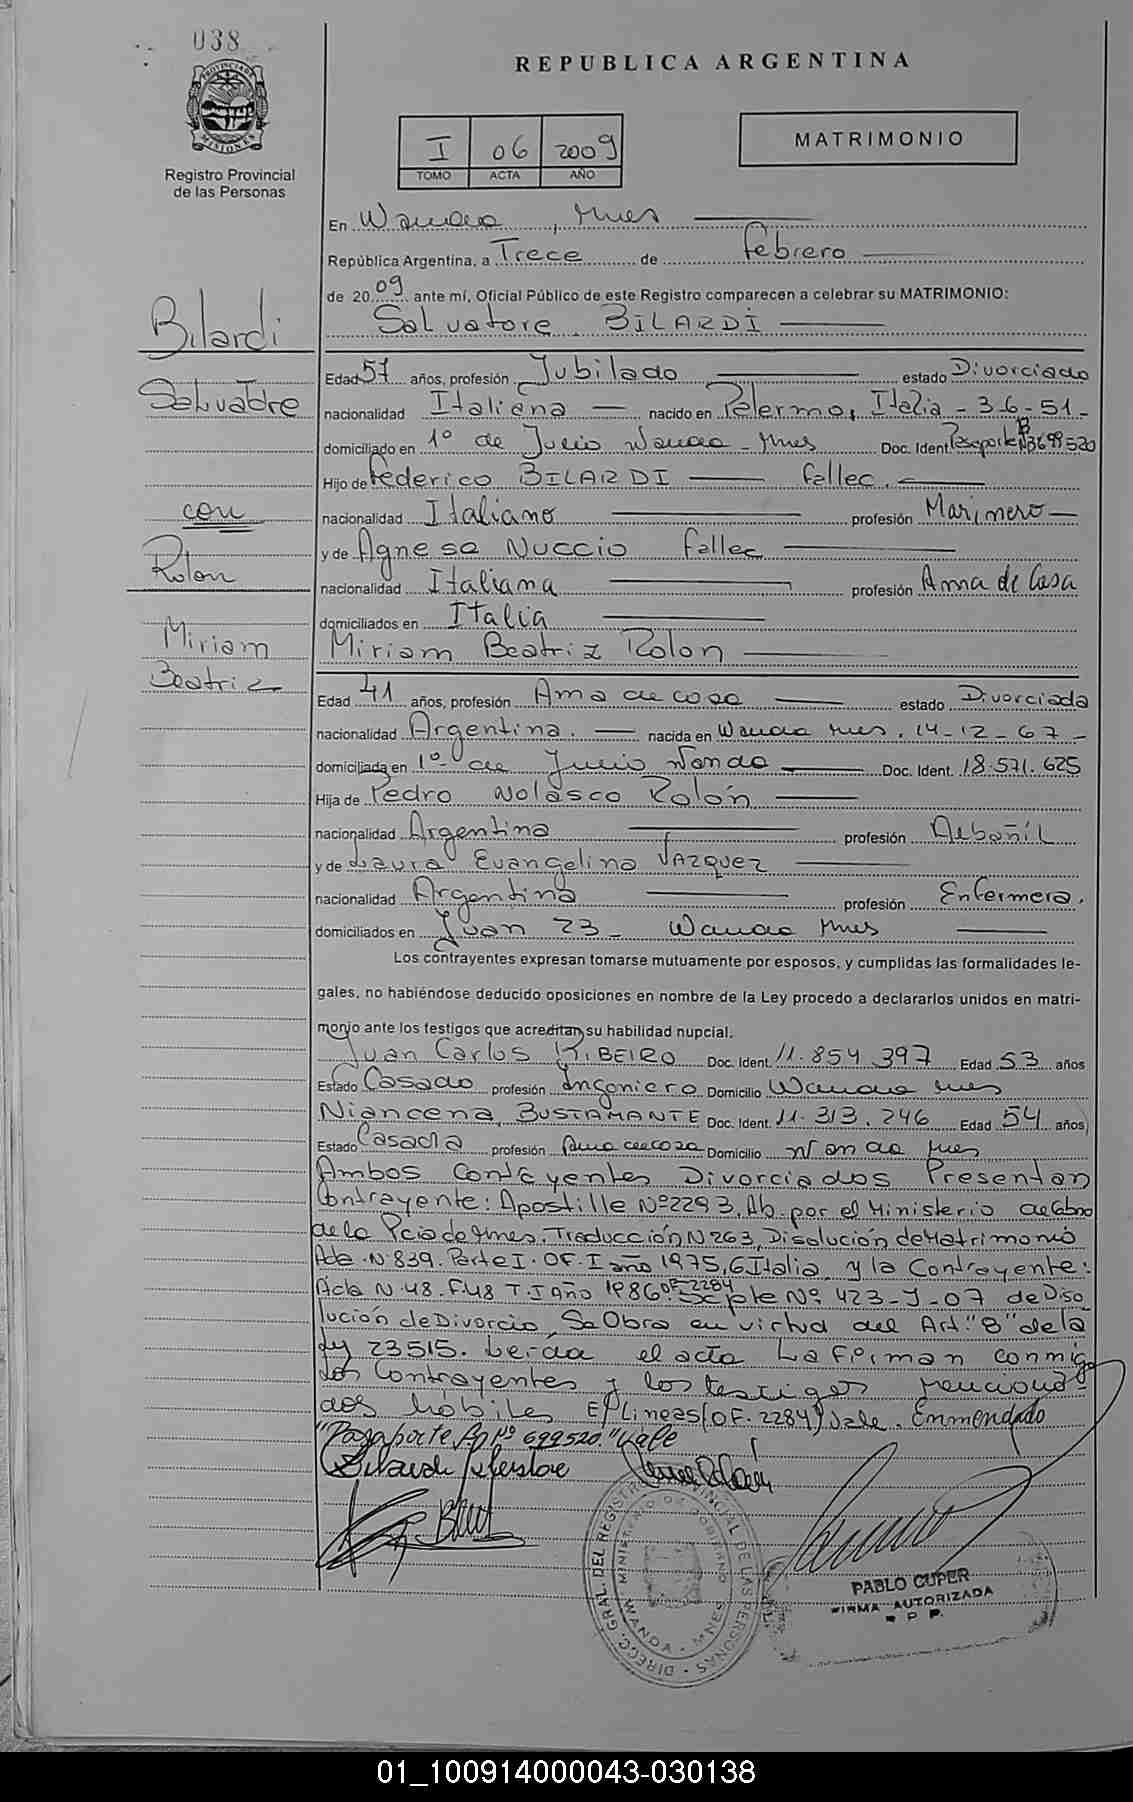 038
PROVINCIA DE MISIONES
Registro Provincial
de las Personas
REPUBLICA ARGENTINA
I 06 2009
TOMO ACTA AÑO
MATRIMONIO
En Wanda, Mnes
República Argentina, a Trece de febrero
de 2009 ante mí, Oficial Público de este Registro comparecen a celebrar su MATRIMONIO:
Salvatore BILARDI
Bilardi
Salvatore
con
Rolon
Miriam
Beatriz
Edad 57 años, profesión Jubilado estado Divorciado
nacionalidad Italiana nacido en Palermo, Italia - 3-6-51-
domiciliado en 1º de Junio Wanda - Mnes Doc. Ident. Pasaporte
Hijo de Federico BILARDI fallec.
nacionalidad Italiano profesión Marinero
y de Agnese NUCCIO fallec
nacionalidad Italiana profesión Ama de Casa
domiciliados en Italia
Miriam Beatriz Rolon
Edad 41 años, profesión Ama de casa estado Divorciada
nacionalidad Argentina. nacida en Wanda Mnes. 14-12-67-
domiciliada en 1º de Junio Wanda Doc. Ident. 18.571.625
Hija de Pedro Nolasco Rolón
nacionalidad Argentino profesión Albañil
y de Laura Evangelina VAZQUEZ
nacionalidad Argentina profesión Enfermera.
domiciliados en Juan 23 - Wanda Mnes
Los contrayentes expresan tomarse mutuamente por esposos, y cumplidas las formalidades le-
gales, no habiéndose deducido oposiciones en nombre de la Ley procedo a declararlos unidos en matri-
monio ante los testigos que acreditan su habilidad nupcial.
Juan Carlos RIBEIRO Doc. Ident. 11.854.397 Edad 53 años
Estado Casado profesión Ingeniero Domicilio Wanda Mnes
Niancena BUSTAMANTE Doc. Ident. 11.313.246 Edad 54 años
Estado Casada profesión Ama de casa Domicilio Wanda Mnes
Ambos Contayentes Divorciados Presentan
Contrayente: Apostille Nº2293, Ab. por el Ministerio de Gbno
de la Pcia de Mnes. Traducción N 263, Disolución de Matrimonio
Acta Nº 839. Parte I. OF. I año 1975, Italia, y la Contrayente:
Acta N. 48. F.48 T. I Año 1986 OF 2284 Nº 423-J-07 de Diso
lución de Divorcio, Se Obra en virtud del Art. "8" de la
Ley 23515. Leida el acta La firman conmigo
los Contrayentes y los testigos menciona
dos hábiles E/ Lineas (OF. 2284) Vale. Enmendado
"Pasaporte Nº 699520." Vale
DIRECC. GRAL. DEL REGISTRO PROVINCIAL DE LAS PERSONAS
MINISTERIO DE GOBIERNO
WANDA - MNES
PABLO CUPER
FIRMA AUTORIZADA
R. P. P.
01_100914000043-030138